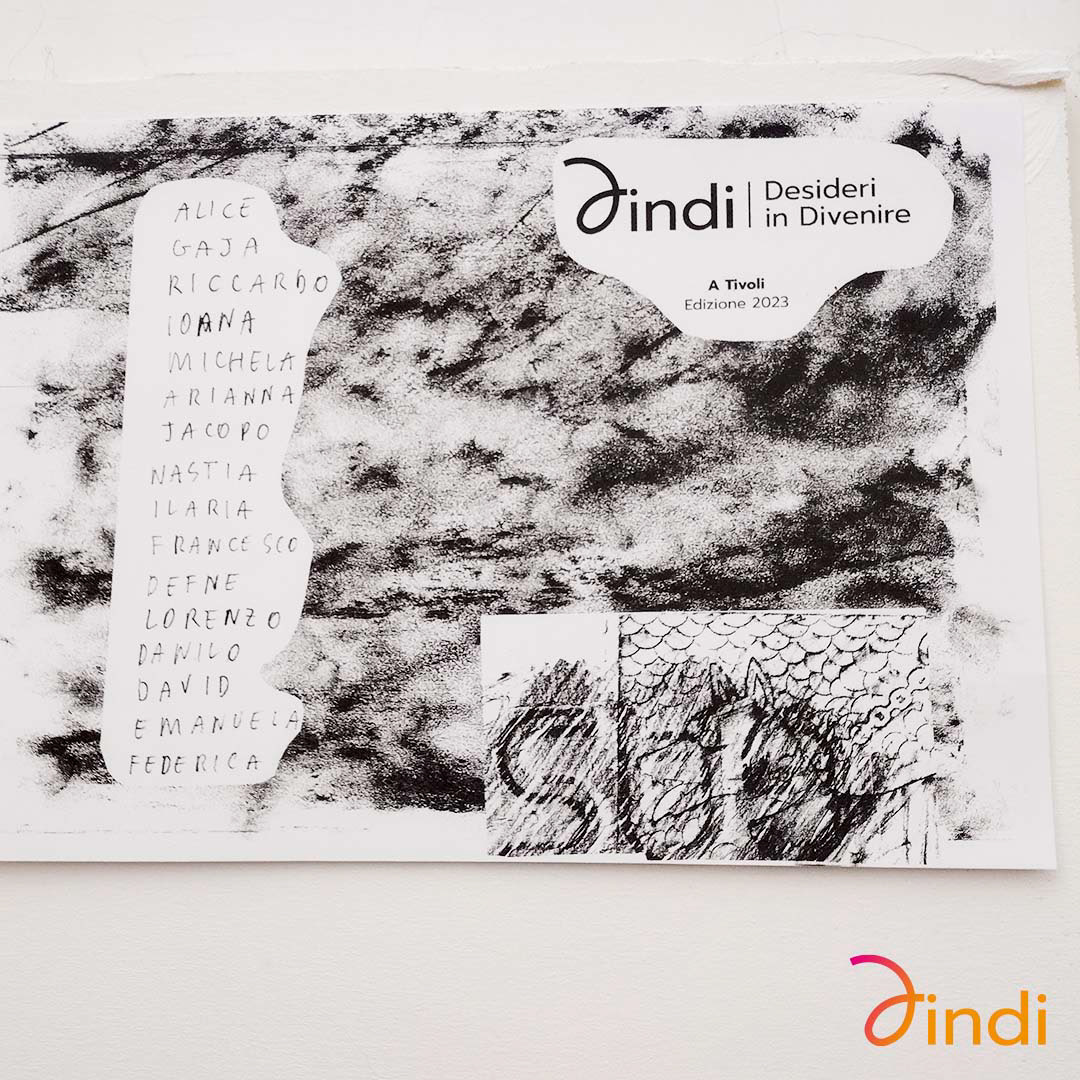 ALICE
GAJA
RICCARDO
IOANA
MICHELA
ARIANNA
JACOPO
NASTIA
ILARIA
FRANCESCO
DEFNE
LORENZO
DANILO
DAVID
EMANUELA
FEDERICA
dindi | Desideri
in Divenire
A Tivoli
Edizione 2023
dindi